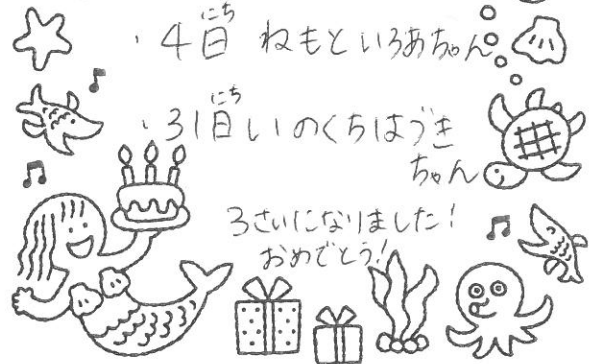 ・4日 ねもといろあちゃん
・31日 いのくちはづき
ちゃん
3さいになりました！
おめでとう！